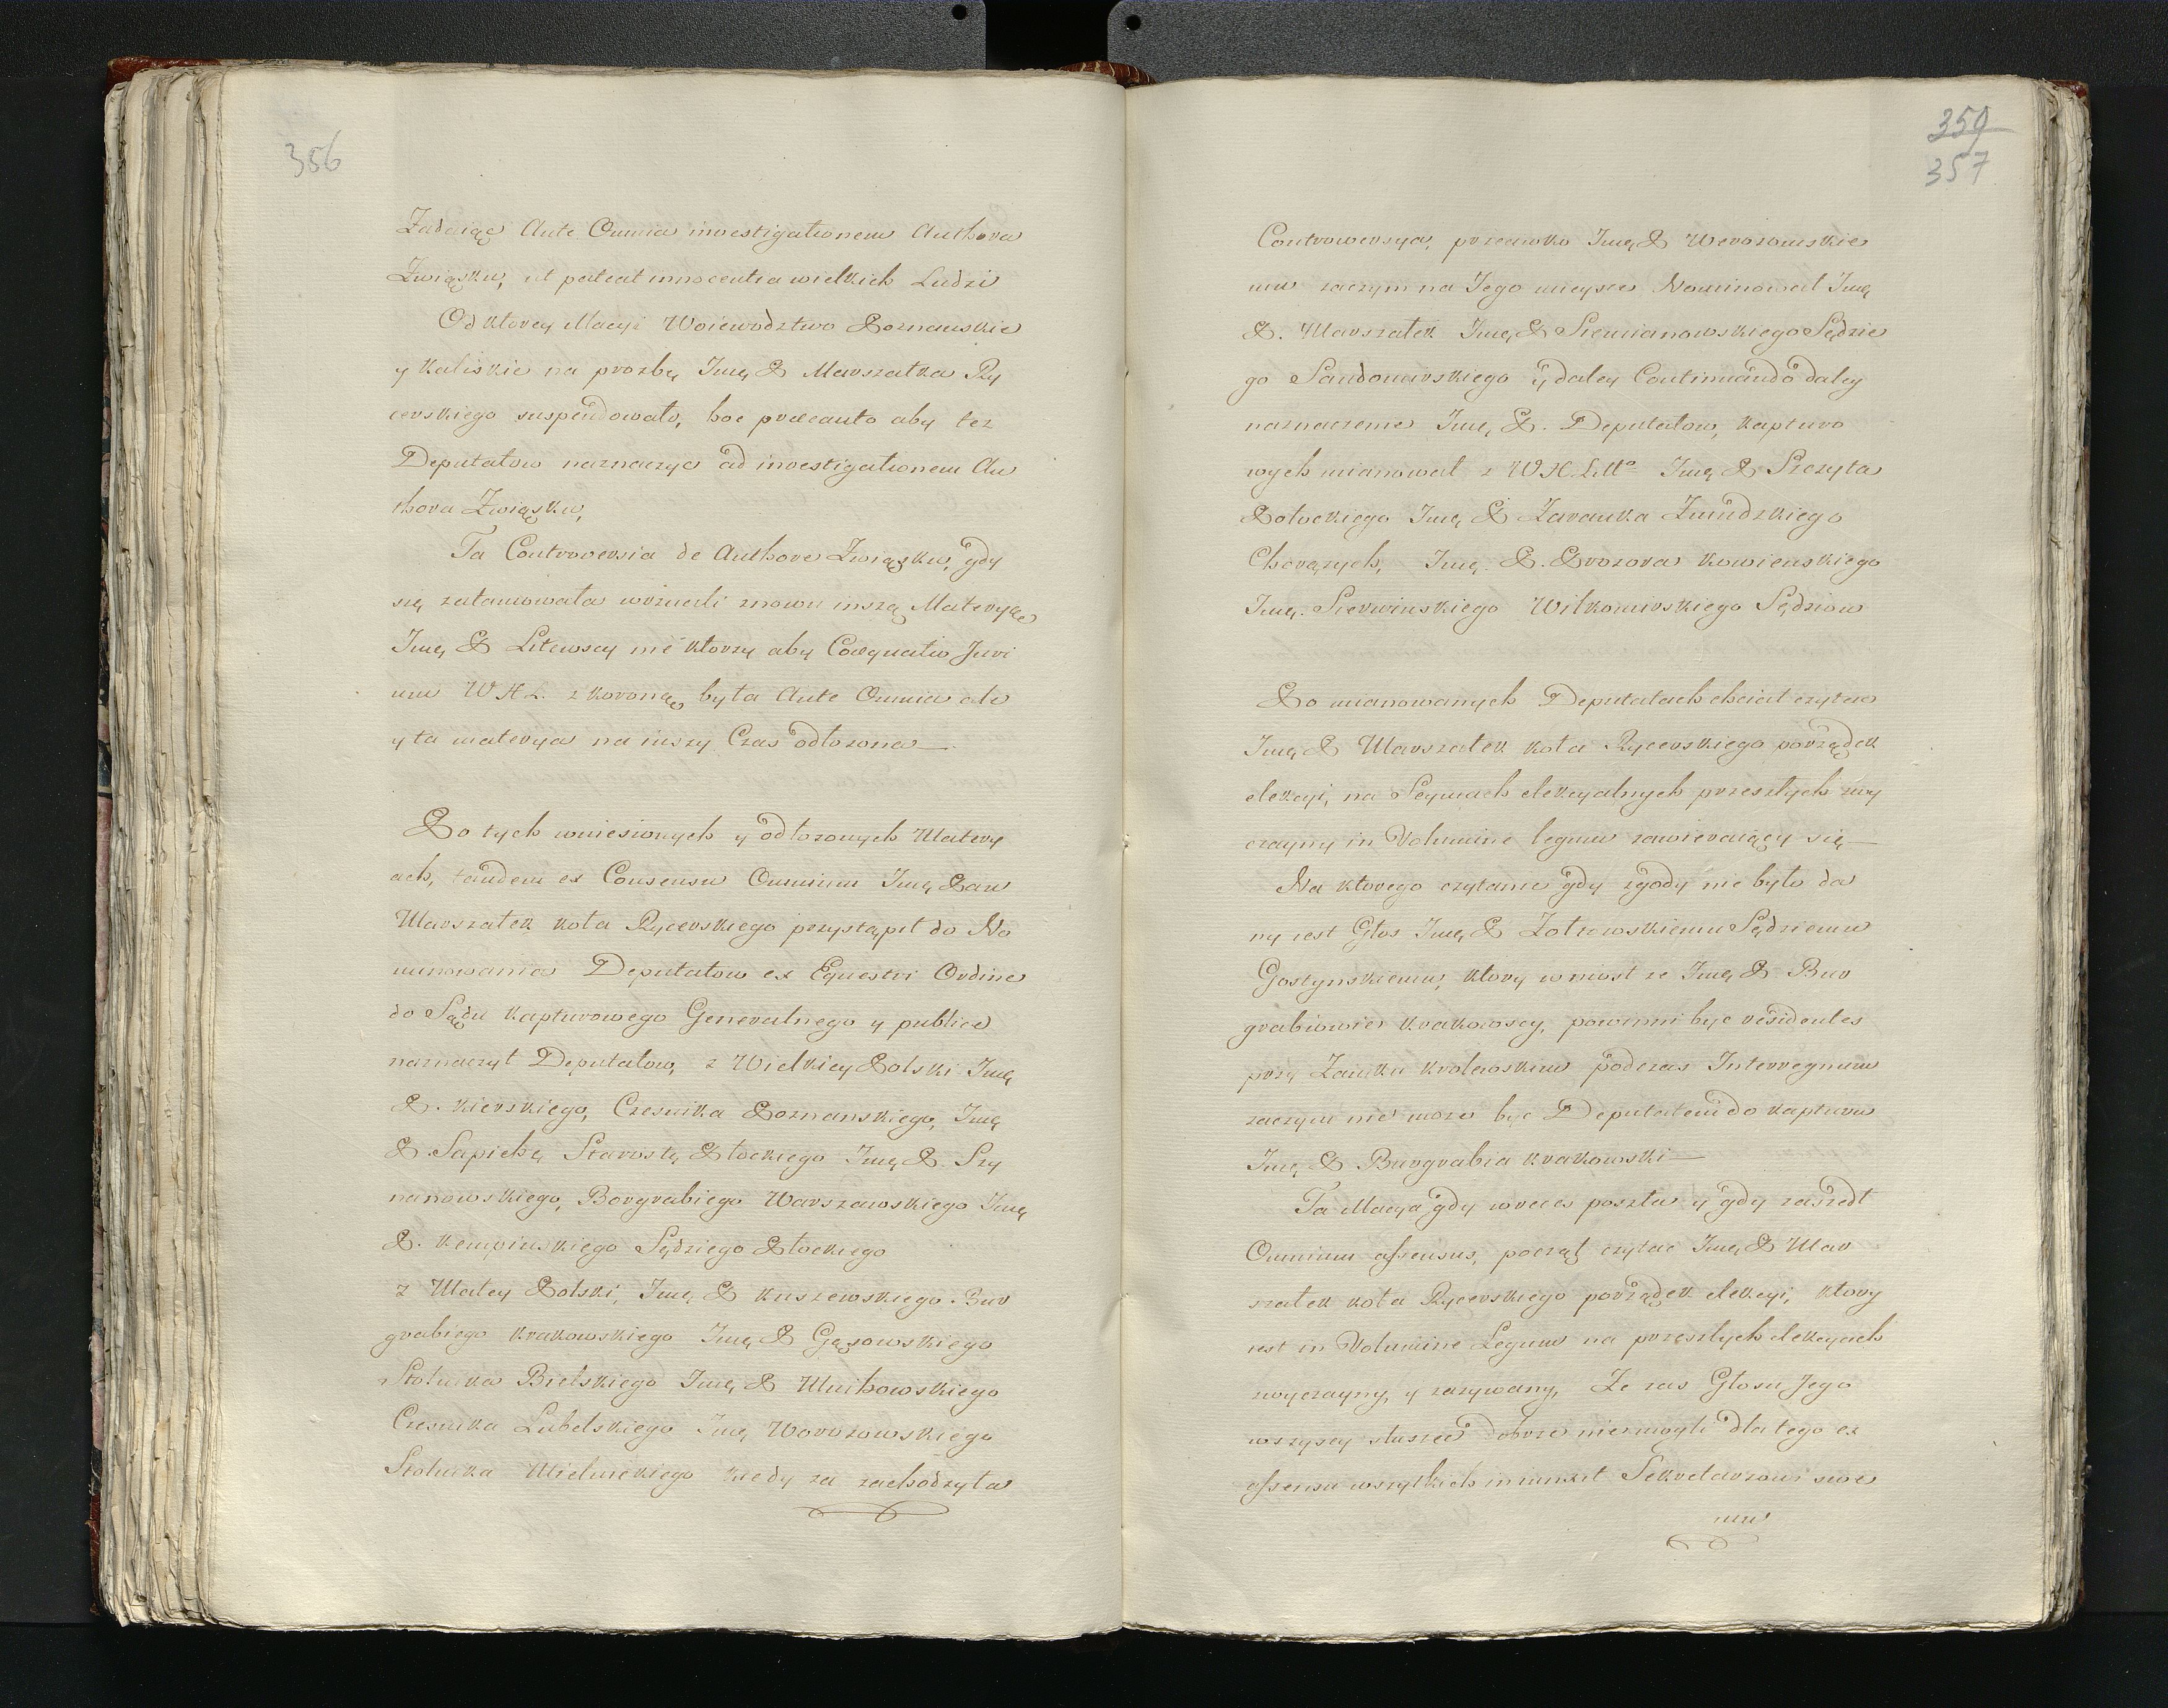 356
Żądaiąc Ante Omnia investigationem Authora
Związku, ut pateat innocentia wielkich Ludzi
Od ktorey Macyi Woiewodztwo Poznanskie
y Kaliskie na prozbę Jmę P Marszałka Ry
cerskiego suspendowało, hoc praecauto aby tez
Deputatow naznaczyc ad investigationem Au
thora Związku,
Ta Controversia de Authore Związku, gdy
się zatamowała wznieśli znowu inszą Materyąę
Jmę P Litewscy nie ktorzy aby Coaequatio Juri
um W X L. z koroną była Ante Omnia ale
y ta materya na inszy Czas odłozona —
Po tych wniesionych y odłozonych Matery
ach, tandem ex Consensu Omnium Jmę Pan
Marszałek koła Rycerskiego przystąpił do No
minowania Deputatow ex Equestri Ordine
do Sądu kapturowego Generalnego y publice
naznaczył Deputatow, z Wielkiey Polski Jmę
P. kierskiego, Czesnika Poznanskiego, Jmę
P Sapiehę Starostę Płockiego Jmę P. Szy
nanowskiego, Borgrabiego Warszawskiego Jmę
P. kempinskiego Sędziego Płockiego
z Małey Polski, Jmę P kuszewskiego. Bur
grabiego krakowskiego Jmę P Gązowskiego
Stolnika Bielskiego Jmę P Mnihowskiego
Czesnika Lubelskiego Jmę Worozowskiego
Stolnika Mielnickiego kiedy za zachodzyła
359
357
Controwersya, przeciwko Jmę P Werozowskie
mu zaczym na Jego mieysce Nominował Jmę
P. Marszałek Jmę P Siemianowskiego Sędzie
go Sandomirskiego y daley Continuando daley
naznaczenie Jmę P. Deputatow, kapturo
wych mianował z W X. Litto Jmę P Sczyta
Połockiego Jmę P Zaranka Zmudzkiego
Chorązych, Jmę. P. Prozora kowienskiego
Jmę. Sierwinskiego Wilkomirskiego Sędziow
Po mianowanych Deputatach chciał czytac
Jmę P Marszałek koła Rycerskiego porządek
elekcyi, na Seymach elekcyalnych przeszłych zwy
czayny in Volumine legum zawieraiący się —
Na ktorego czytanie gdy zgody nie było da
ny iest Głos Jmę P Zołtowskiemu Sędziemu
Gostynskiemu, ktory wniosł ze Jmę P Bur
grabiowie krakowscy, powinni byc residentes
przy Zamku krolewskim podczas Interregnum
zaczym nie moze byc Deputatem do kapturu
Jmę P Burgrabia krakowski —
Ta Macya gdy wreces poszła y gdy zaszedł
Omnium assensus, począł czytac Jmę P Mar
szałek koła Rycerskiego porządek elekcyi, ktory
iest in Volumine Legum na przeszłych elekcyach
zwyczayny, y zazywany, Ze zas Głosu Jego
wszyscy słuszeć dobrze niemogli dla tego ex
assensu wszytkich iniunxit Sekretarzowi swe
mu